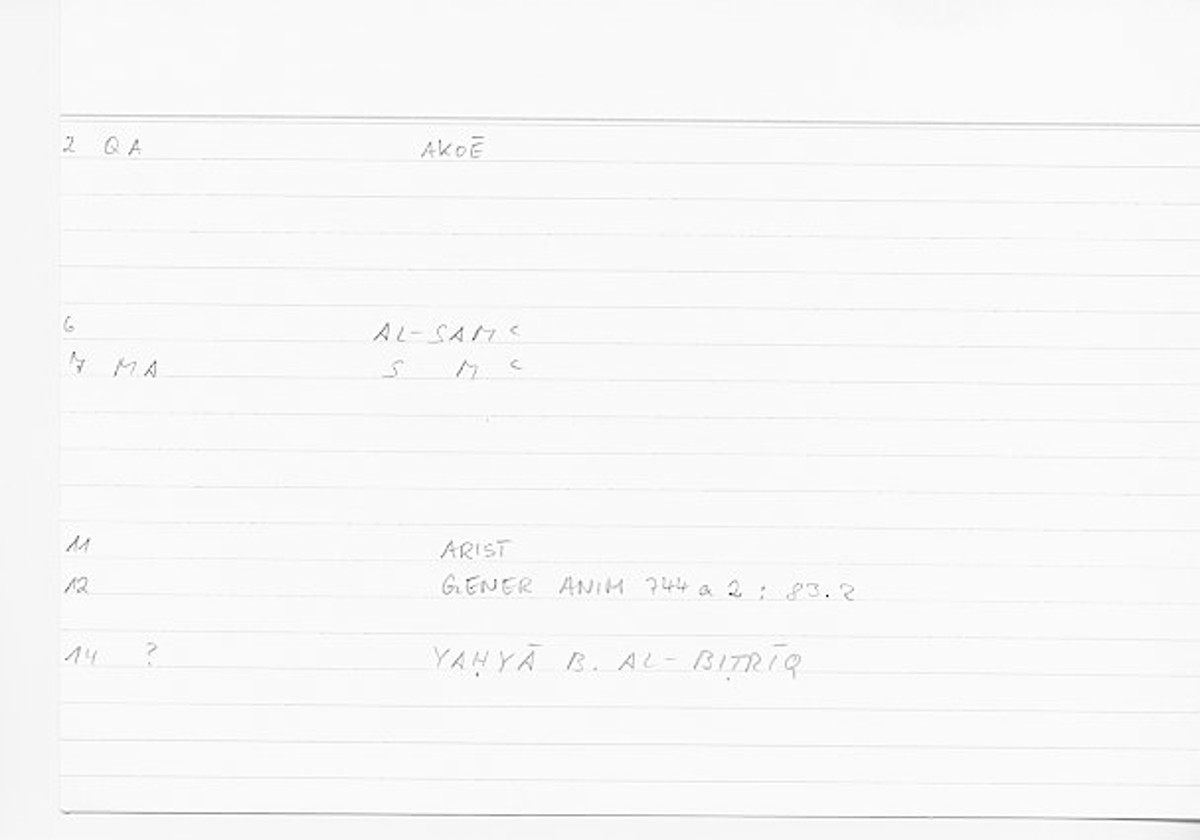 2 QA AKOĒ
6 AL-SAMᶜ
7 MA S M ᶜ
11 ARIST
12 GENER ANIM 744 a 2 : 83.2
14 ? YAḤYĀ B. AL-BIṬRĪQ